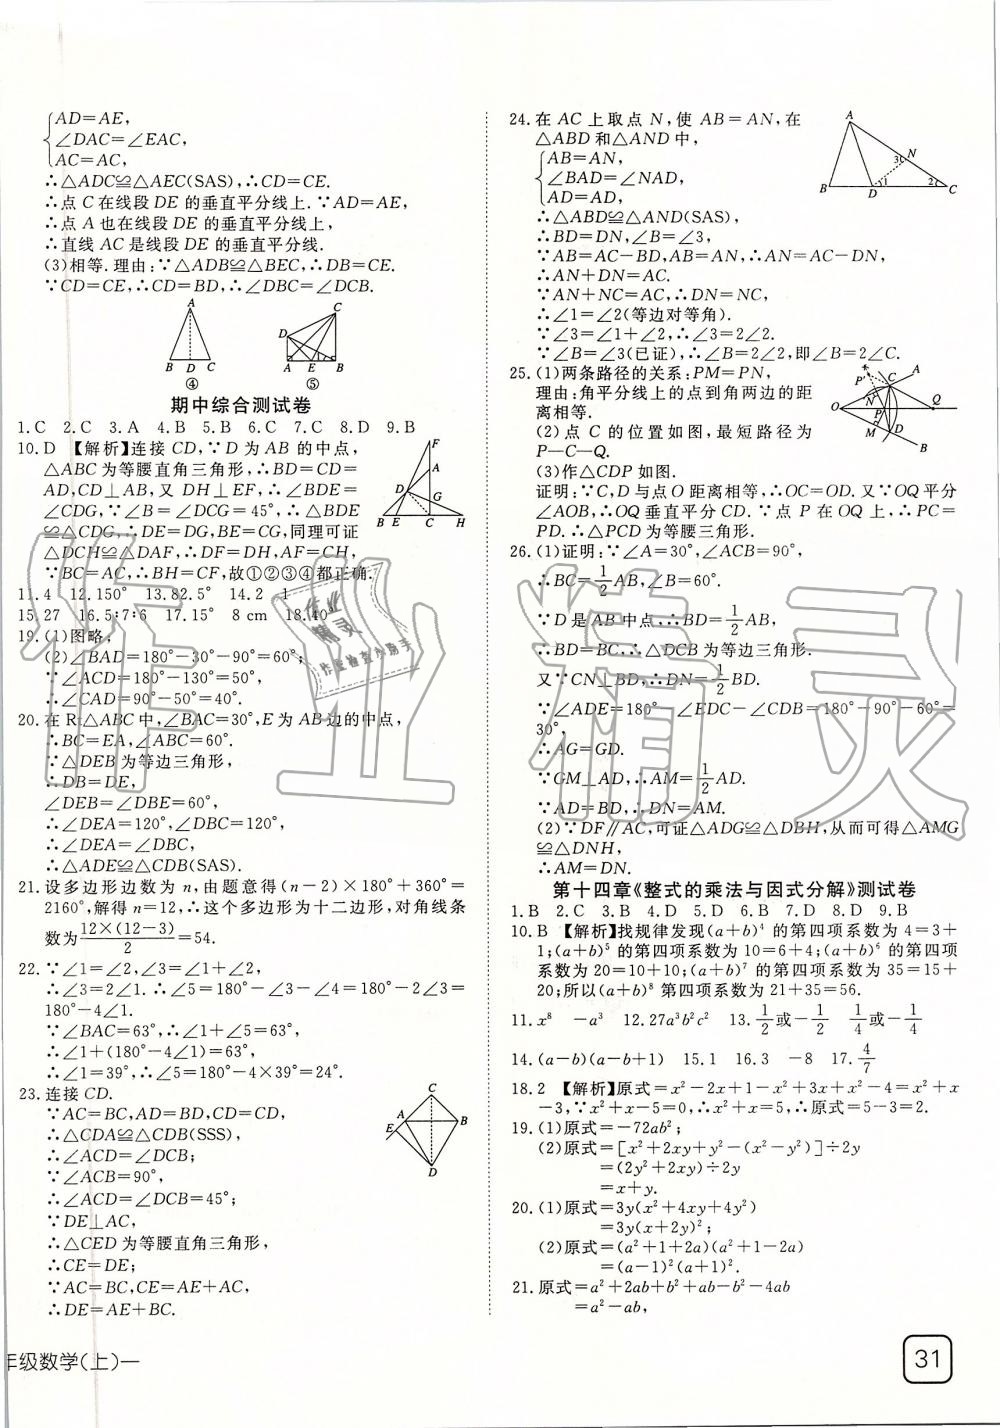 AD=AE,
∠DAC=∠EAC,
AC=AC,
∴△ADC≌△AEC(SAS),∴CD=CE.
∴点C在线段DE的垂直平分线上.∵AD=AE,
∴点A也在线段DE的垂直平分线上,
∴直线AC是线段DE的垂直平分线.
(3)相等.理由:∵△ADB≌△BEC,∴DB=CE.
∵CD=CE,∴CD=BD,∴∠DBC=∠DCB.
A
B D C
④
C
D
A E B
⑤
期中综合测试卷
1.C 2.C 3.A 4.B 5.B 6.C 7.C 8.D 9.B
10.D 【解析】连接CD,∵D为AB的中点,
△ABC为等腰直角三角形,∴BD=CD=
AD,CD⊥AB,又DH⊥EF,∴∠BDE=
∠CDG,∵∠B=∠DCG=45°,∴△BDE
≌△CDG,∴DE=DG,BE=CG,同理可证
△DCH≌△DAF,∴DF=DH,AF=CH,
∵BC=AC,∴BH=CF,故①②③④都正确.
F
A
D
G
B E C H
11.4 12.150° 13.82.5° 14.2 1
15.27 16.5:7:6 17.15° 8 cm 18.40°
19.(1)图略;
(2)∠BAD=180°-30°-90°=60°;
∵∠ACD=180°-130°=50°,
∴∠CAD=90°-50°=40°.
20.在R△ABC中,∠BAC=30°,E为AB边的中点,
∴BC=EA,∠ABC=60°.
∵△DEB为等边三角形,
∴DB=DE,
∠DEB=∠DBE=60°,
∴∠DEA=120°,∠DBC=120°,
∴∠DEA=∠DBC,
∴△ADE≌△CDB(SAS).
21.设多边形边数为n,由题意得(n-2)×180°+360°=
2160°,解得n=12,∴这个多边形为十二边形,对角线条
数为12×(12-3)/2=54.
22.∵∠1=∠2,∠3=∠1+∠2,
∴∠3=2∠1.∴∠5=180°-∠3-∠4=180°-2∠3=
180°-4∠1.
∵∠BAC=63°,∴∠1+∠5=63°,
∴∠1+(180°-4∠1)=63°,
∴∠1=39°,∴∠5=180°-4×39°=24°.
23.连接CD.
∵AC=BC,AD=BD,CD=CD,
∴△CDA≌△CDB(SSS),
∴∠ACD=∠DCB;
∵∠ACB=90°,
∴∠ACD=∠DCB=45°;
∵DE⊥AC,
∴△CED为等腰直角三角形,
∴CE=DE;
∵AC=BC,CE=AE+AC,
∴DE=AE+BC.
C
A
E
B
D
24.在AC上取点N,使AB=AN,在
△ABD和△AND中,
AB=AN,
∠BAD=∠NAD,
AD=AD,
∴△ABD≌△AND(SAS),
∴BD=DN,∠B=∠3,
∵AB=AC-BD,AB=AN,∴AN=AC-DN,
∴AN+DN=AC.
∵AN+NC=AC,∴DN=NC,
∴∠1=∠2(等边对等角).
∵∠3=∠1+∠2,∴∠3=2∠2.
∵∠B=∠3(已证),∴∠B=2∠2,即∠B=2∠C.
A
3 N
1 2
B D C
25.(1)两条路径的关系:PM=PN,
理由:角平分线上的点到角两边的距
离相等.
(2)点C的位置如图,最短路径为
P—C—Q.
(3)作△CDP如图.
证明:∵C,D与点O距离相等,∴OC=OD.又∵OQ平分
∠AOB,∴OQ垂直平分CD.∵点P在OQ上,∴PC=
PD.∴△PCD为等腰三角形.
P′ C A
N
O P Q
M D
B
26.(1)证明:∵∠A=30°,∠ACB=90°,
∴BC=1/2AB,∠B=60°.
∵D是AB中点,∴BD=1/2AB,
∴BD=BC.∴△DCB为等边三角形.
又∵CN⊥BD,∴DN=1/2BD.
∵∠ADE=180°-∠EDC-∠CDB=180°-90°-60°=
30°,
∴AG=GD.
∵GM⊥AD,∴AM=1/2AD.
∵AD=BD,∴DN=AM.
(2)∵DF∥AC,可证△ADG≌△DBH,从而可得△AMG
≌△DNH,
∴AM=DN.
第十四章《整式的乘法与因式分解》测试卷
1.B 2.C 3.B 4.D 5.D 6.B 7.D 8.D 9.B
10.B 【解析】找规律发现(a+b)⁴的第四项系数为4=3+
1;(a+b)⁵的第四项系数为10=6+4;(a+b)⁶的第四项
系数为20=10+10;(a+b)⁷的第四项系数为35=15+
20;所以(a+b)⁸第四项系数为21+35=56.
11.x⁸ -a³ 12.27a³b²c² 13.1/2或-1/2 1/4或-1/4
14.(a-b)(a-b+1) 15.1 16.3 -8 17.4/7
18.2 【解析】原式=x²-2x+1-x²+3x+x²-4=x²+x
-3,∵x²+x-5=0,∴x²+x=5,∴原式=5-3=2.
19.(1)原式=-72ab²;
(2)原式=[x²+2xy+y²-(x²-y²)]÷2y
=(2y²+2xy)÷2y
=x+y.
20.(1)原式=3y(x²+4xy+4y²)
=3y(x+2y)²;
(2)原式=(a²+1+2a)(a²+1-2a)
=(a-1)²(a+1)².
21.原式=a²+2ab+b²+ab-b²-4ab
=a²-ab,
年级数学(上)—
31
作业精灵